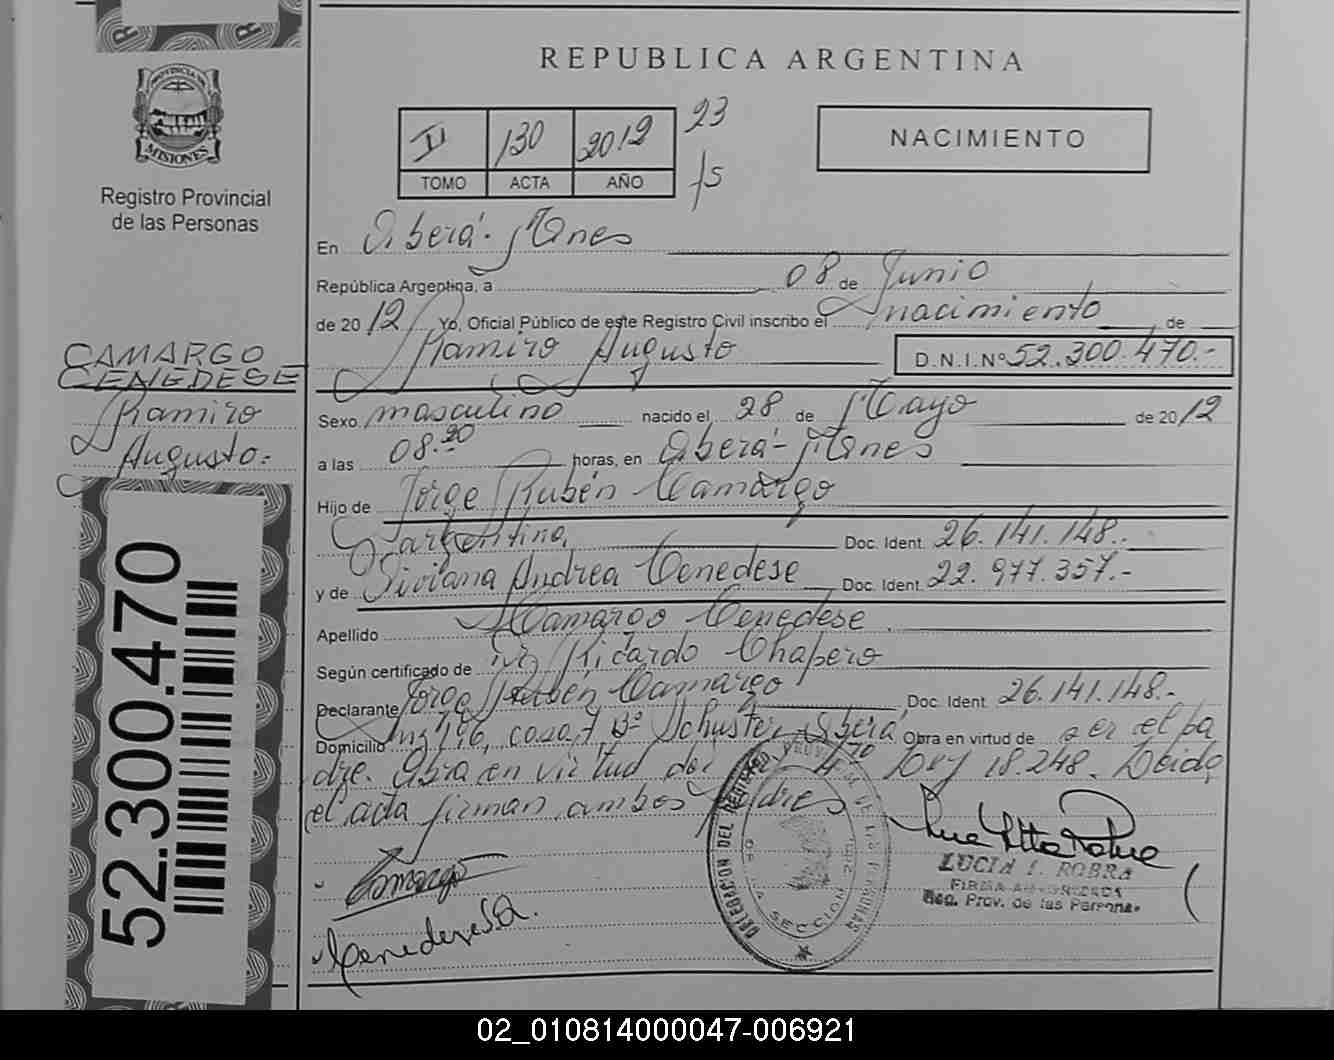 REPUBLICA ARGENTINA
PROVINCIA DE
MISIONES
Registro Provincial
de las Personas
II 130 2012 23
TOMO ACTA AÑO fs
NACIMIENTO
En Oberá - Mnes
República Argentina, a 08 de Junio
de 2012 Yo, Oficial Público de este Registro Civil inscribo el nacimiento de
Ramiro Augusto D.N.I.Nº 52.300.470.-
CAMARGO
CENEDESE
Ramiro
Augusto.
52.300.470
Sexo masculino nacido el 28 de Mayo de 2012
a las 08.20 horas, en Oberá - Mnes
Hijo de Jorge Rubén Camargo
argentino, Doc. Ident. 26.141.148.-
y de Viviana Andrea Cenedese Doc. Ident. 22.977.357.-
Apellido Camargo Cenedese
Según certificado de Dr. Ricardo Chapero
Declarante Jorge Rubén Camargo Doc. Ident. 26.141.148.-
Domicilio Mz 196, casa 7 Bº Schuster, Oberá Obra en virtud de ser el pa
dre. Obra en virtud del Ley 18.248. Leida
el acta firman ambos padres
Camargo
Cenedese
DELEGACION DEL REGISTRO PROVINCIAL DE LAS PERSONAS
SECCION
LUCIA I. ROBRA
FIRMA AUTORIZADA
Reg. Prov. de las Personas
02_010814000047-006921